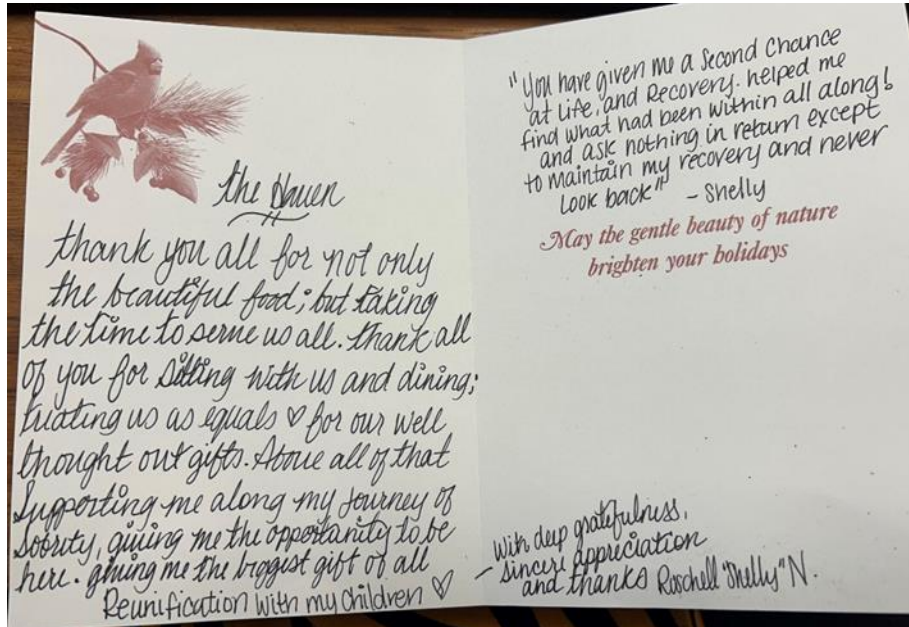 the Haven
thank you all for not only
the beautiful food; but taking
the time to serve us all. thank all
of you for sitting with us and dining;
treating us as equals ♡ for our well
thought out gifts. Above all of that
Supporting me along my journey of
sobrity, giving me the opportunity to be
here. giving me the biggest gift of all
Reunification with my children ♡
"You have given me a Second Chance
at Life, and Recovery. helped me
find what had been within all along!
and ask nothing in return except
to maintain my recovery and never
Look back" - Shelly
May the gentle beauty of nature
brighten your holidays
- With deep gratefulness,
sincere appreciation
and thanks Roschell "Shelly" N.